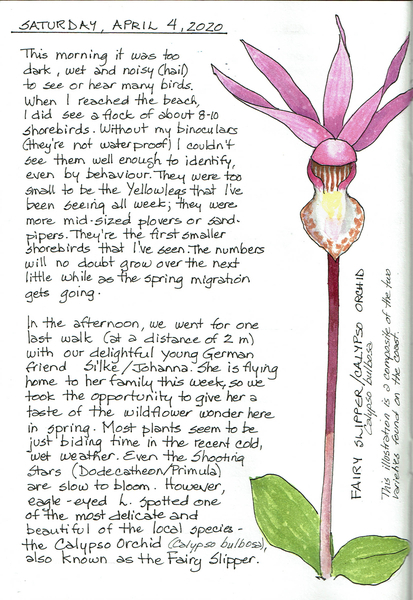 SATURDAY, APRIL 4, 2020
This morning it was too
dark, wet and noisy (hail)
to see or hear many birds.
When I reached the beach,
I did see a flock of about 8-10
shorebirds. Without my binoculars
(they're not waterproof) I couldn't
see them well enough to identify,
even by behaviour. They were too
small to be the Yellowlegs that I've
been seeing all week; they were
more mid-sized plovers or sand-
pipers. They're the first smaller
shorebirds that I've seen. The numbers
will no doubt grow over the next
little while as the spring migration
gets going.
In the afternoon, we went for one
last walk (at a distance of 2 m)
with our delightful young German
friend Silke/Johanna. She is flying
home to her family this week, so we
took the opportunity to give her a
taste of the wildflower wonder here
in spring. Most plants seem to be
just biding time in the recent cold,
wet weather. Even the Shooting
Stars (Dodecatheon/Primula)
are slow to bloom. However,
eagle-eyed L. spotted one
of the most delicate and
beautiful of the local species -
the Calypso Orchid (Calypso bulbosa),
also known as the Fairy Slipper.
FAIRY SLIPPER/CALYPSO ORCHID
Calypso bulbosa
This illustration is a composite of the two
varieties found on the coast.